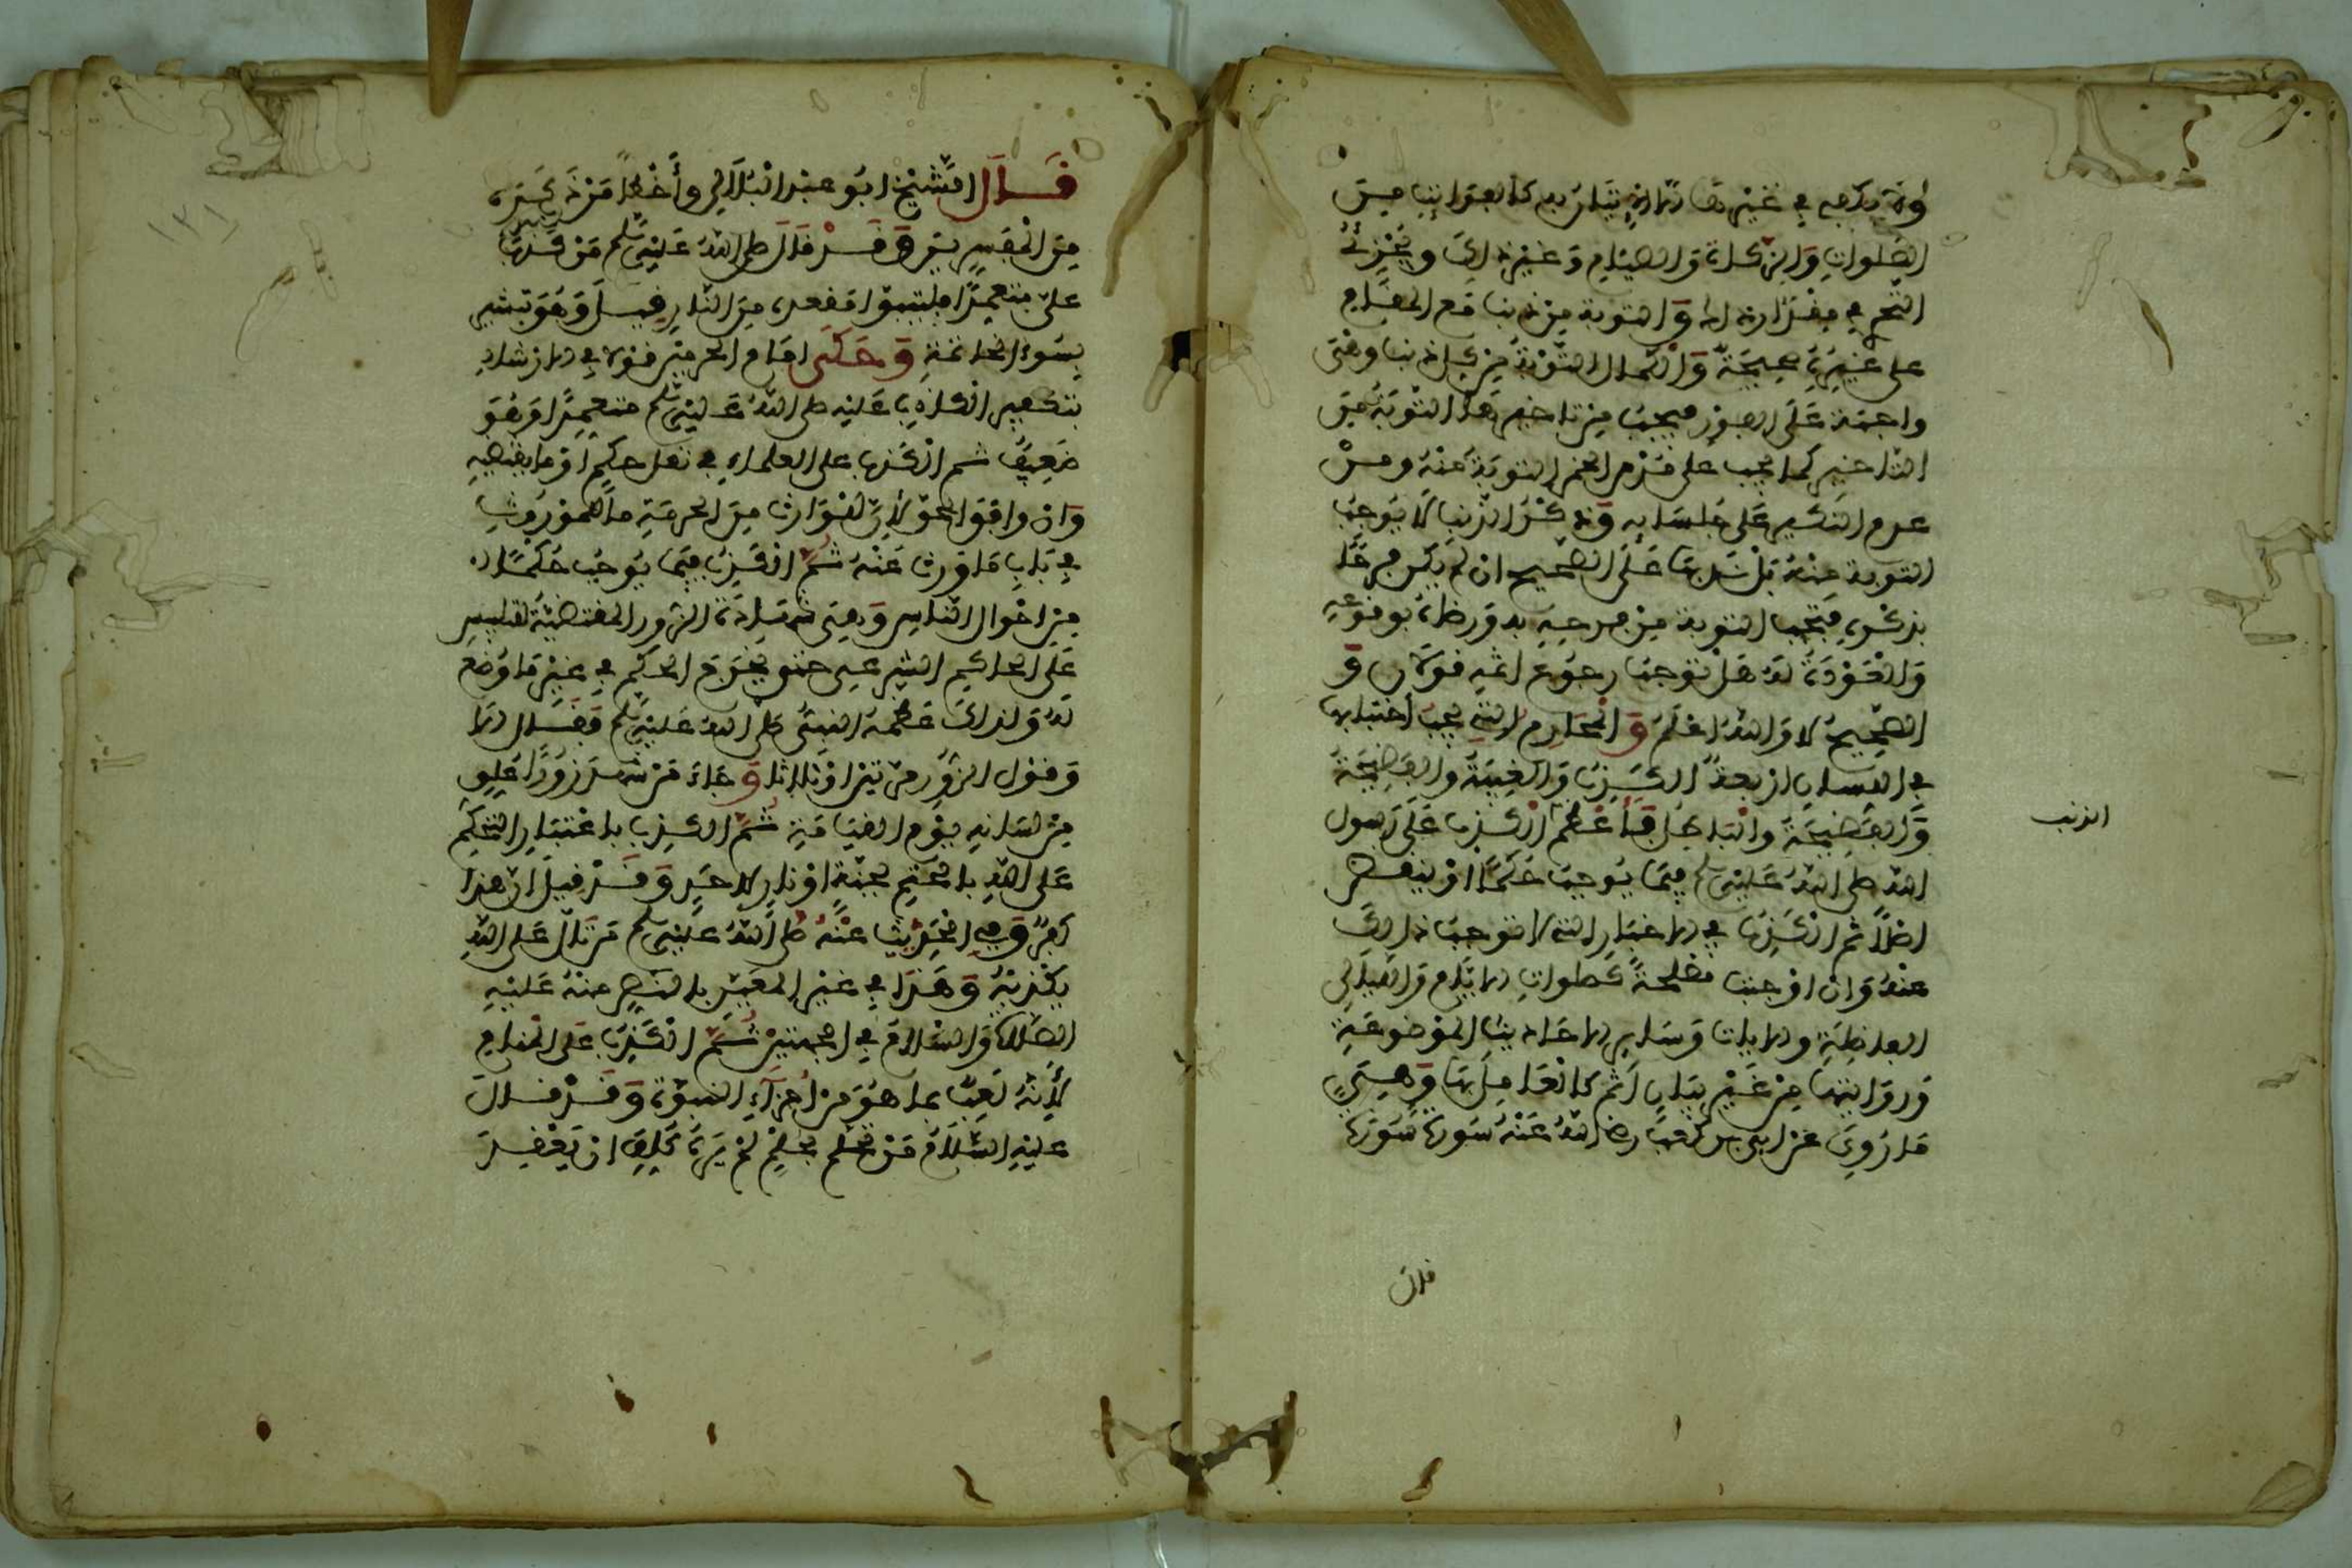 ولا يكفي في غيرها الا ان يتدارك كالفوايت من
الصلوات والزكاة والصيام وغير ذلك ويجزئه
التحري في مقدار ذلك والتوبة من ذنب مع المقام
على غيره صحيحة والكمال التوبة من كل ذنب وهي
واجبة على الفور فيجب من تاخير هذه التوبة من
التاخير كما يجب على شرب الخمر التوبة منه ومن
عدم النكير على جلسايه وتذكر الذنب لا يوجب
التوبة منه بل شانها على الصحيح ان لم يكن فرحا
بذكره فتجب التوبة من فرحه به ورضاه بوقوعه
والعودة له هل توجب رجوع اثمه قولان و
الصحيح لا والله اعلم والمحارم التي يجب اجتنابها
في اللسان اربعة الكذب والغيبة والفضيحة
والفضيحة والباطل فاعظم الكذب على رسول
الله صلى الله عليه وسلم فيما يوجب حكما او ينقض
اصلا ثم الكذب في الاخبار التي لا توجب ذلك
عنه وان اوجبت مصلحة كصلوات الايام والليالي
الفاضلة والايات وساير الاحاديث الموضوعة
وروايتها من غير بيان اثم كالعامل بها وهي
ما روي عن ابي بن كعب رضي الله عنه سورة سورة
الذنب
قال
قال الشيخ ابو عبد البلالي وأخطأ من ذكره
من المفسرين وقد قال صلى الله عليه وسلم من كذب
على متعمدا فليتبوا مقعده من النار قيل وهو تبشير
بسوء الخاتمة وحكى امام الحرمين قولا في الارشاد
بتكفير الكاذب عليه صلى الله عليه وسلم متعمدا وهو
ضعيف ثم الكذب على العلماء في نقل حكم او ما يقتضيه
وان وافق الحق لان للوارث من الحرمة ما للموروث
في باب ما ورث عنه ثم الكذب فيما يوجب حكما
من احوال الناس وهي شهادة الزور المقتضية تلبيس
على الحاكم الشرعي حتى يخرج الحكم في غير ما وضع
له ولذلك عظمه النبي صلى الله عليه وسلم فقال الا
وقول الزور مرتين او ثلاثا وجاء من شهد زورا علق
من لسانه يوم القيامة ثم الكذب باعتبار التحكم
على الله بالحتم بجنة او نار لاحد وقد قيل ان هذا
كفر وفي الحديث عنه صلى الله عليه وسلم من تال على الله
يكذبه وهذا في غير المعين بالنص منه عليه
الصلاة والسلام في الجنتين ثم الكذب على المنام
لأنه لعب بما هو من اجزاء النبوة وقد قال
عليه السلام من تحلم بحلم لم يره كلف ان يعقد